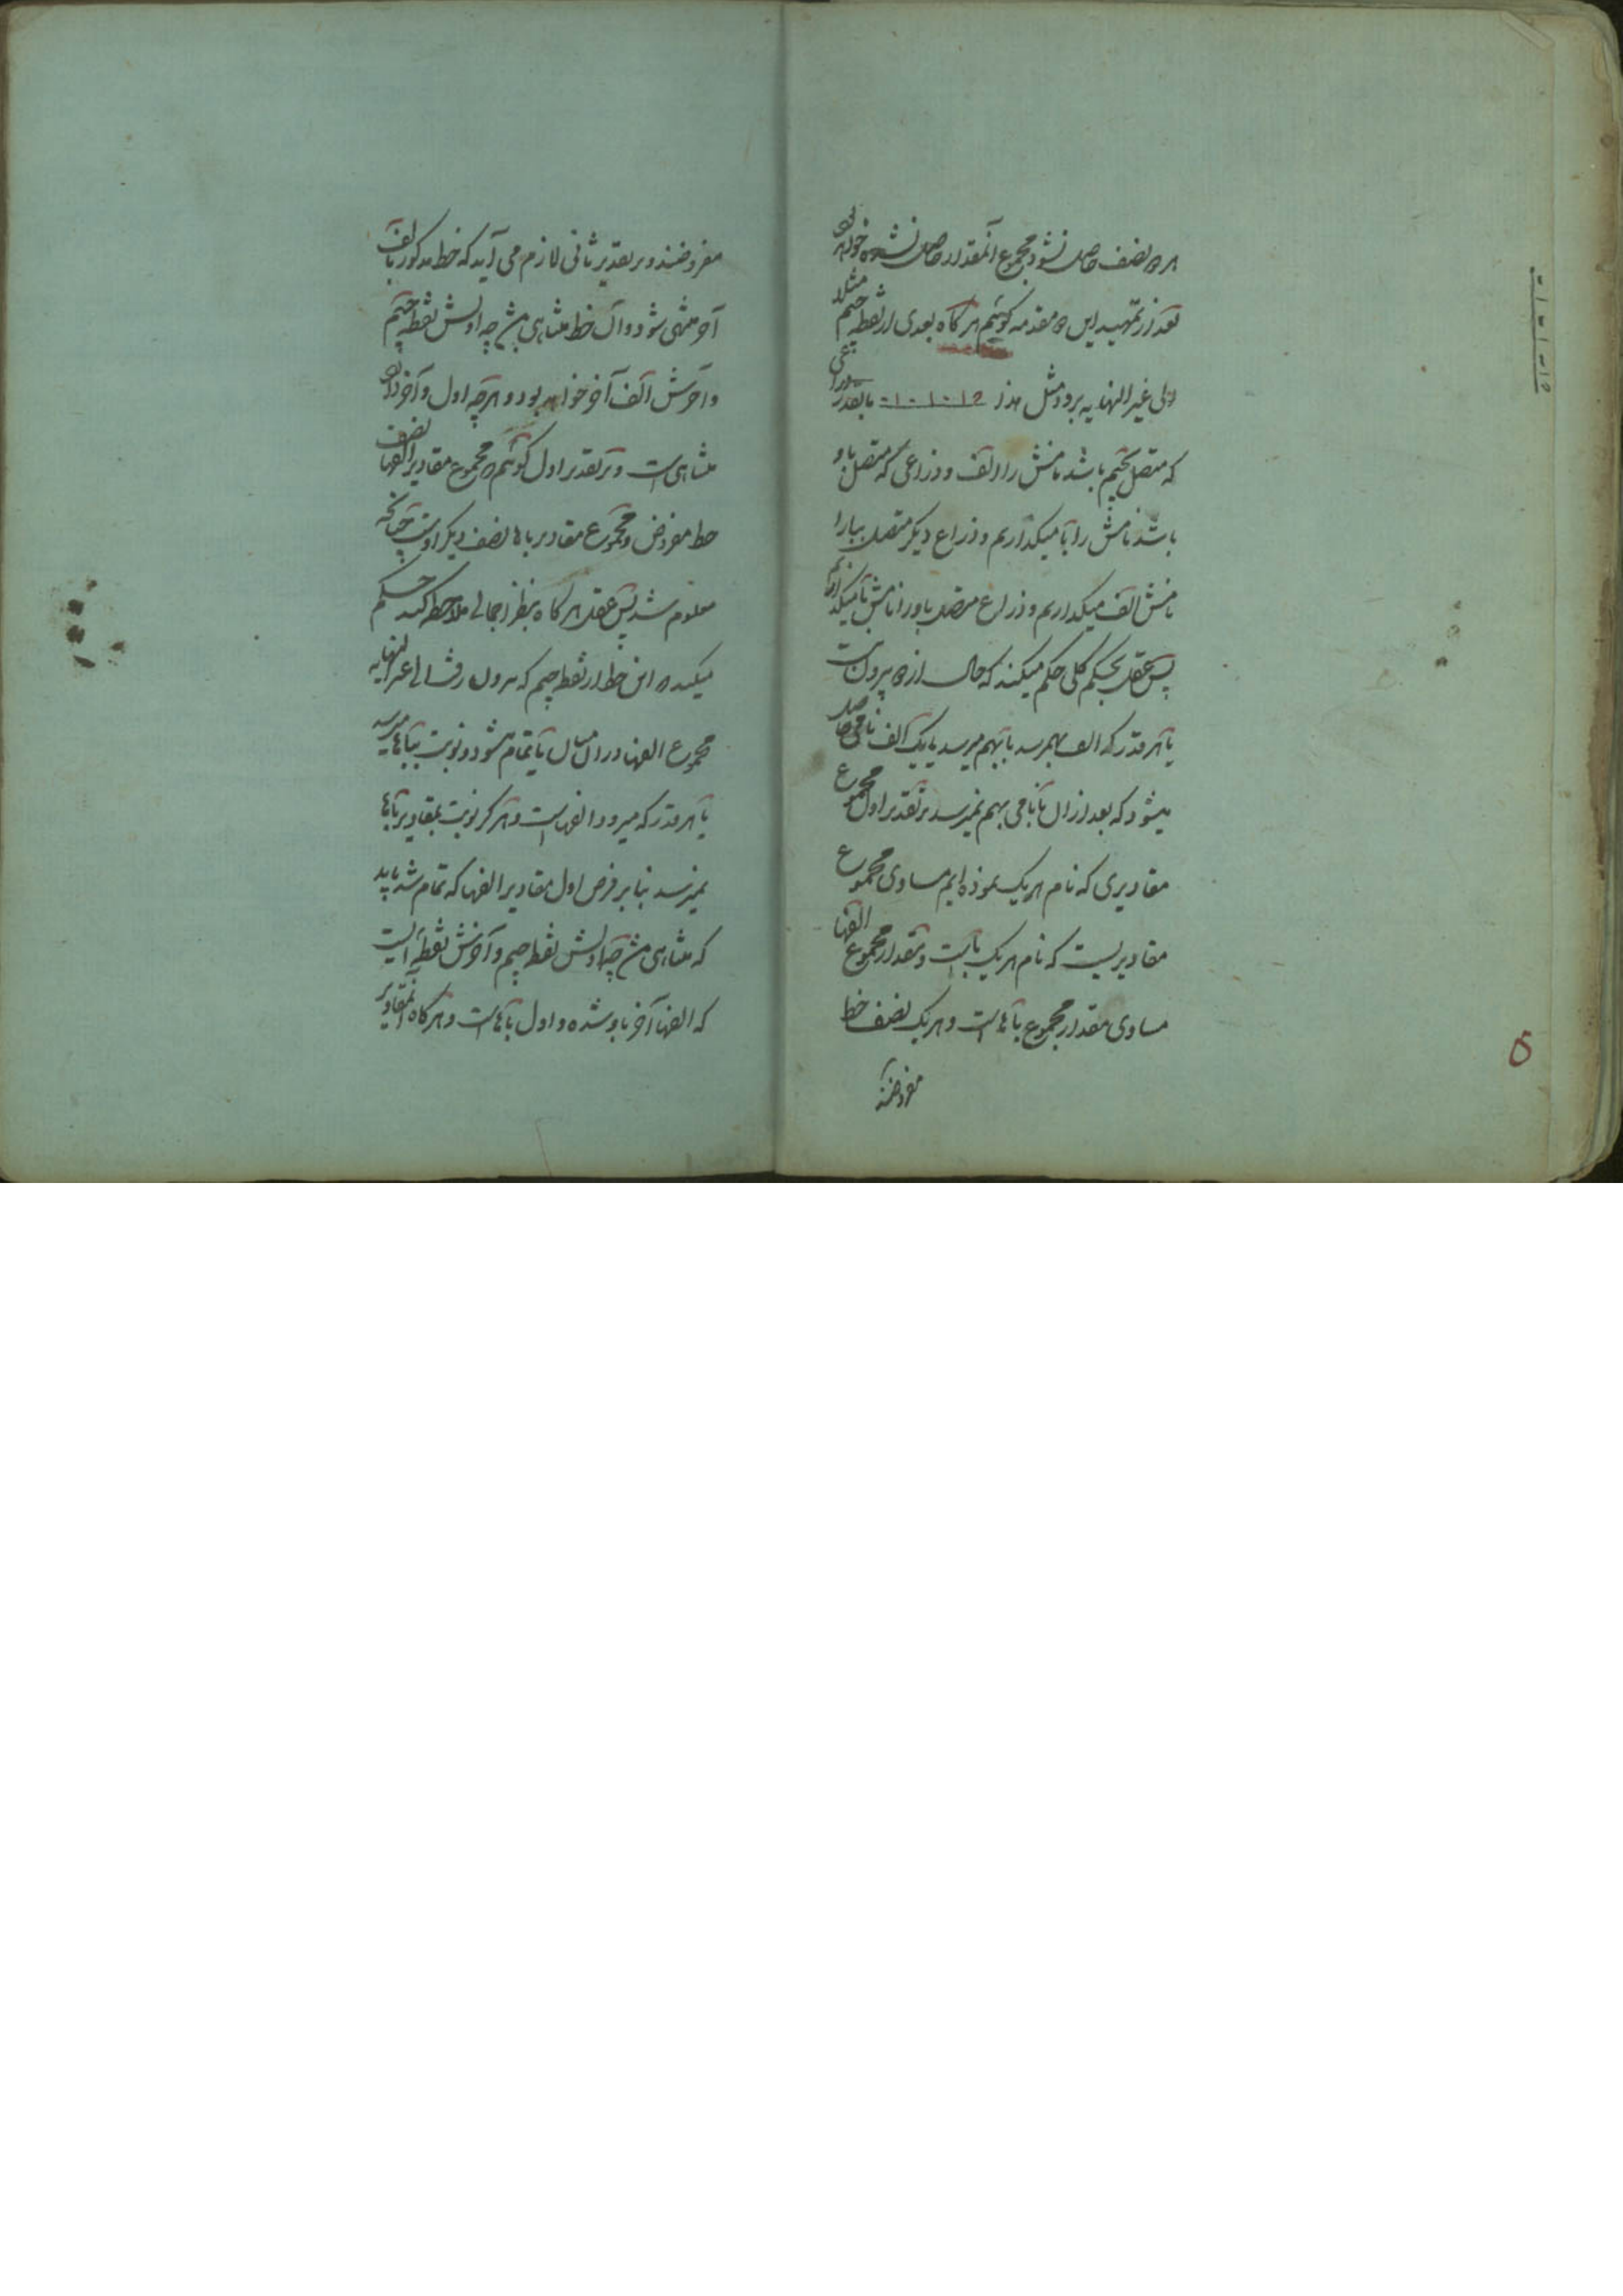 هر دو نصف حاصل نشود مجموع آنمقدار حاصل نشده خواهد بود
بعد از تمهید این دو مقدمه گوئیم هرگاه بعدی از نقطه جیم مثلا
الی غیر النهایه برود مثل هذا ما بقدر ذراعی
که متصل بجیم باشد نامش را الف و ذراعی که متصل باو
باشد نامش را با میگذاریم و ذراع دیگر متصل ببا را
نامش الف میگذاریم و ذراع متصل باو را نامش با میگذاریم
پس عقل بحکم کلی حکم میکند که حال از دو بیرون نیست
یا هر قدر که الف بهم رسد با بهم میرسد یا یک الف نامی حاصل
میشود که بعد از آن با نامی بهم نمیرسد بر تقدیر اول مجموع
مقادیری که نام هر یک نموده ایم مساوی مجموع
مقادیریست که نام هر یک باست و مقدار مجموع الفها
مساوی مقدار مجموع باهاست و هر یک نصف خط
مفروضند
مفروضند و بر تقدیر ثانی لازم می آید که خط مذکور بالف
آخر منتهی شود و آن خط متناهی باشد چه اولش نقطه جیم
و آخرش الف آخر خواهد بود و هر چه اول و آخر دارد
متناهی است و بر تقدیر اول گوئیم که مجموع مقادیر الفها نصف
خط مفروض و مجموع مقادیر باها نصف دیگر اوست چنانچه
معلوم شد پس عقل هرگاه بنظر اجمالی ملاحظه کند حکم
میکند که این خط از نقطه جیم که بیرون رفت الی غیر النهایه
مجموع الفها در آن میان یا تمام میشود و نوبت بباها میرسد
یا هر قدر که میرود الفهاست و هرگز نوبت بمقادیر باها
نمیرسد بنا بر فرض اول مقادیر الفها که تمام شد باید
که متناهی باشد چه اولش نقطه جیم و آخرش نقطه ایست
که الفها آخر باو شده و اول باهاست و هرگاه آنمقادیر